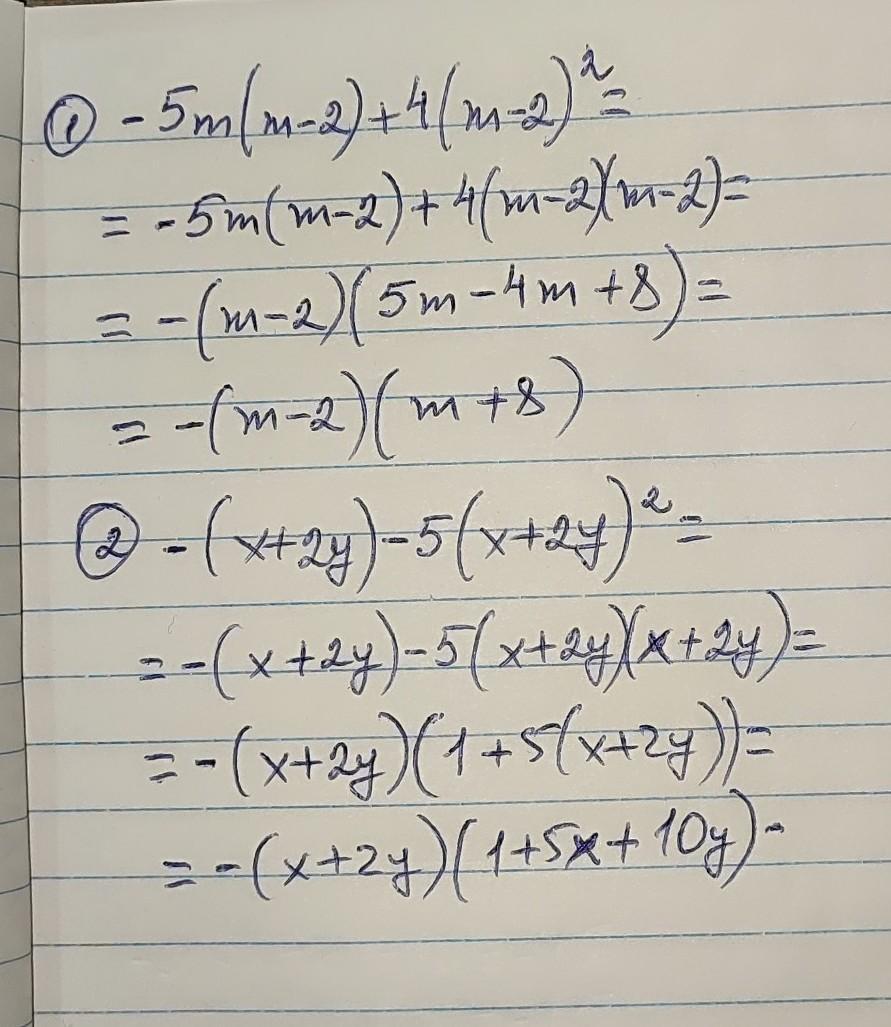 ① -5m(m-2)+4(m-2)²=
= -5m(m-2)+4(m-2)(m-2)=
= -(m-2)(5m-4m+8)=
= -(m-2)(m+8)
② -(x+2y)-5(x+2y)²=
= -(x+2y)-5(x+2y)(x+2y)=
= -(x+2y)(1+5(x+2y))=
= -(x+2y)(1+5x+10y)-